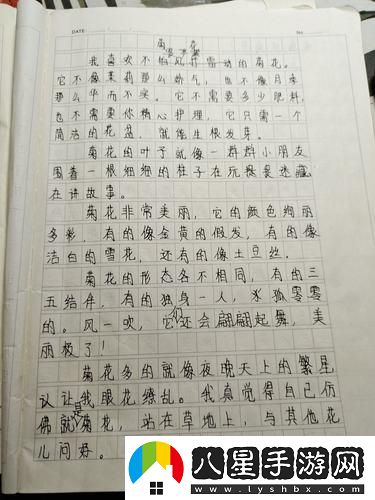 DATE:
No
菊花
我喜欢不怕风打雷动的菊花。
它不像茉莉那么娇气,也不像月季
那么华而不实。它不需要多少肥料,
也不需要你精心护理,它只需一个
简洁的花盆,就能生根发芽。
菊花的叶子就像一群群小朋友
围着一根细细的柱子在玩畏畏迷藏
在讲故事。
菊花非常美丽,它的颜色绚丽
多彩,有的像金黄的假发,有的像
洁白的雪花,还有的像土豆丝。
菊花的形态各不相同,有的三
五结伴,有的独身一人,孤零零
的。风一吹,它们还会翩翩起舞,美
丽极了!
菊花多的就像夜晚天上的繁星
认让我眼花缭乱。我真觉得自己仿
佛就是菊花,站在草地上,与其他花
儿问好。
八星手游网
www.lyshbx.com